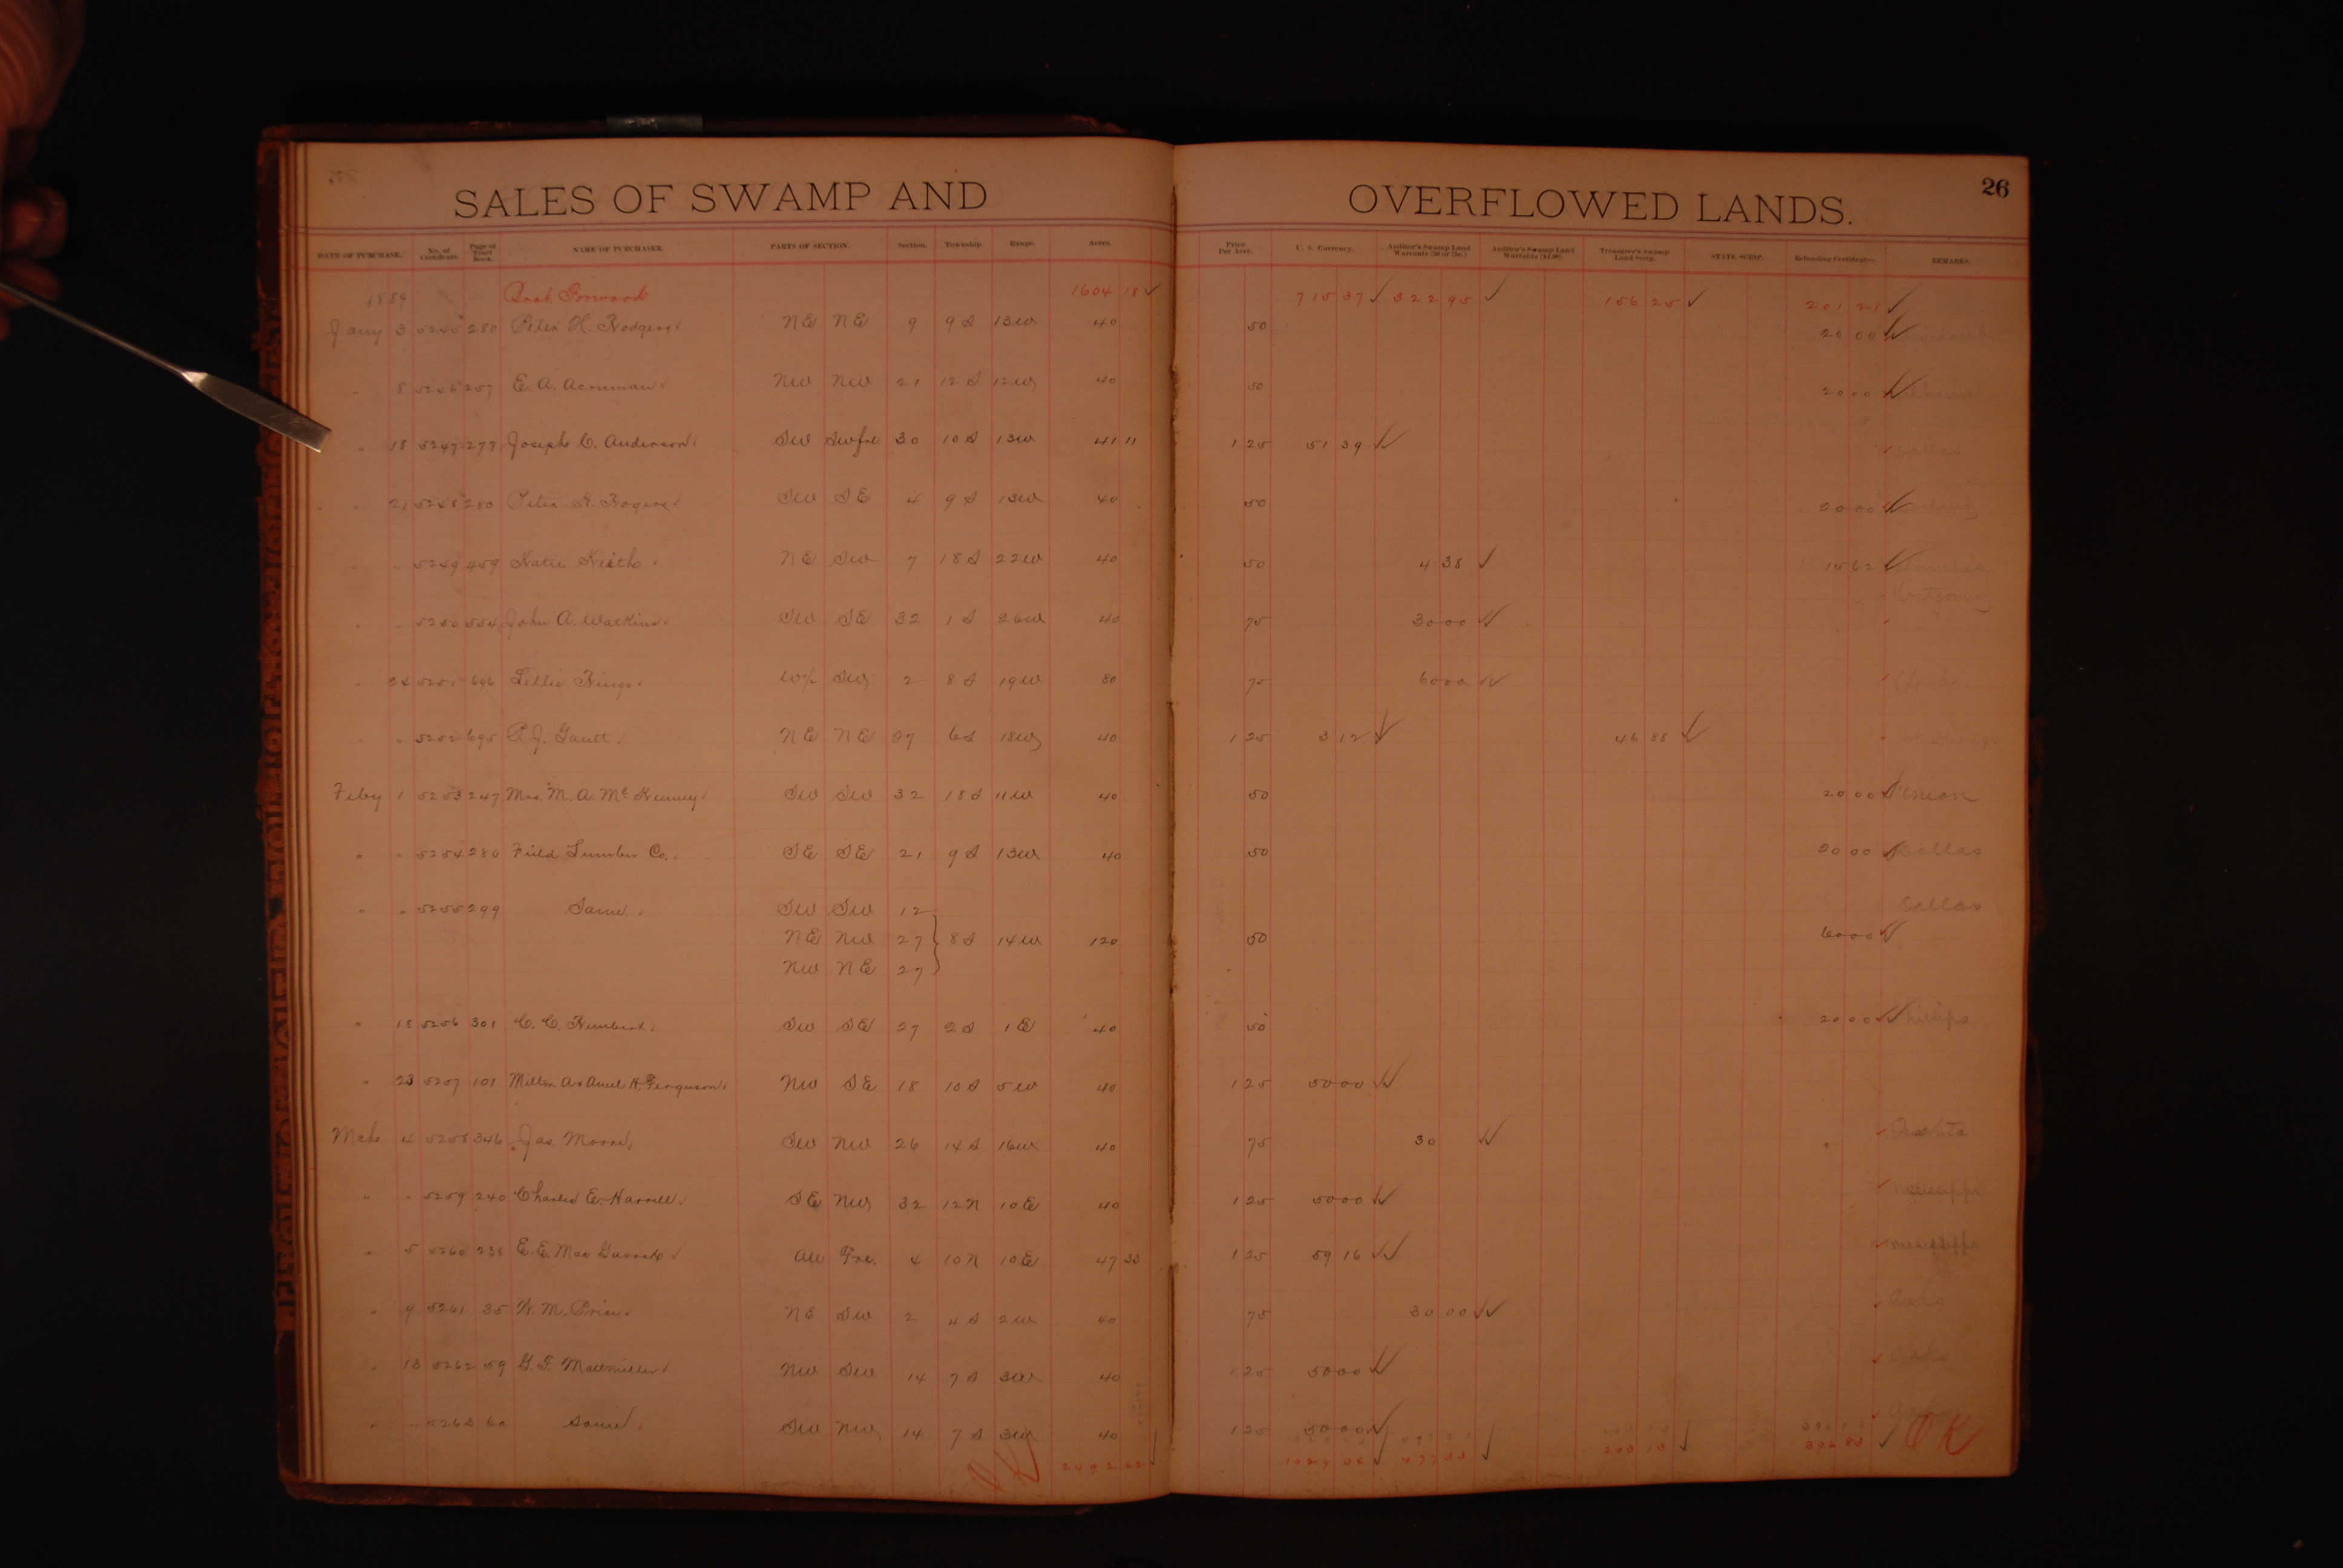 SALES OF SWAMP AND OVERFLOWED LANDS. 26
DATE OF PURCHASE. No. of Certificate. Page of Tract Book. NAME OF PURCHASER. PARTS OF SECTION. Section. Township. Range. Acres. Price Per Acre. U. S. Currency. Auditor's Swamp Land Warrants (50 or 75c.) Auditor's Swamp Land Warrants ($1.00) Treasurer's Swamp Land Scrip. STATE SCRIP. Refunding Certificates. REMARKS.
1889 Forward 1604 18 ✓ 715 37 ✓ 322 95 ✓ 156 25 ✓ 201 21 ✓
Jany 3 5245 280 Peter H. Rodgers NE NE 9 9 S 13W 40 50 20 00 ✓
" 8 5246 257 E. A. Acruman NW NW 21 12 S 12W 40 50 20 00 ✓ Calhoun
" 18 5247 277 Joseph C. Anderson SW SWfrl. 30 10 S 13W 41 11 1 25 51 39 ✓ Dallas
" 21 5248 280 Peter H. Rogers SW SE 4 9 S 13W 40 50 20 00 ✓
" " 5249 459 Katie Keith NE SW 7 18 S 22W 40 50 4 38 ✓ 15 62 ✓ Columbia
" " 5250 554 John A. Watkins SW SE 32 1 S 26W 40 75 30 00 ✓ Montgomery
" 24 5251 696 Lillie Rings W½ SW 2 8 S 19W 80 75 60 00 ✓ Clark
" " 5252 695 P. J. Gault NE NE 27 6 S 18W 40 1 25 3 12 ✓ 46 88 ✓ Hot Springs
Feby 1 5253 247 Mrs. M. A. McKenney SW SW 32 18 S 11W 40 50 20 00 ✓ Union
" " 5254 280 Field Lumber Co. SE SE 21 9 S 13W 40 50 20 00 ✓ Dallas
" " 5255 299 Same SW SW 12 Dallas
NE NW 27 } 8 S 14W 120 50 60 00 ✓
NW NE 27
" 18 5256 301 C. C. SW SE 27 2 S 1 E 40 50 20 00 ✓ Phillips
" 23 5257 101 Milton A & Amel H. Ferguson NW SE 18 10 S 5W 40 1 25 50 00 ✓
Mch 4 5258 346 Jas. Moore SW NW 26 14 S 16W 40 75 30 ✓ Ouachita
" " 5259 240 Charles E. Harrell SE NW 32 12 N 10 E 40 1 25 50 00 ✓ Mississippi
" 5 5260 238 E. E. Mac All Frl. 4 10 N 10 E 47 33 1 25 59 16 ✓ Mississippi
" 9 5261 35 W. M. Price NE SW 2 4 S 2W 40 75 30 00 ✓ Arks
" 13 5262 59 G. F. NW SW 14 7 S 3W 40 1 25 50 00 ✓ Arks
" " 5263 60 Same SW NW 14 7 S 3W 40 1 25 50 00 ✓
OK 2492 62 ✓ 1029 04 ✓ 477 33 ✓ 203 13 ✓ 396 83 ✓ OK